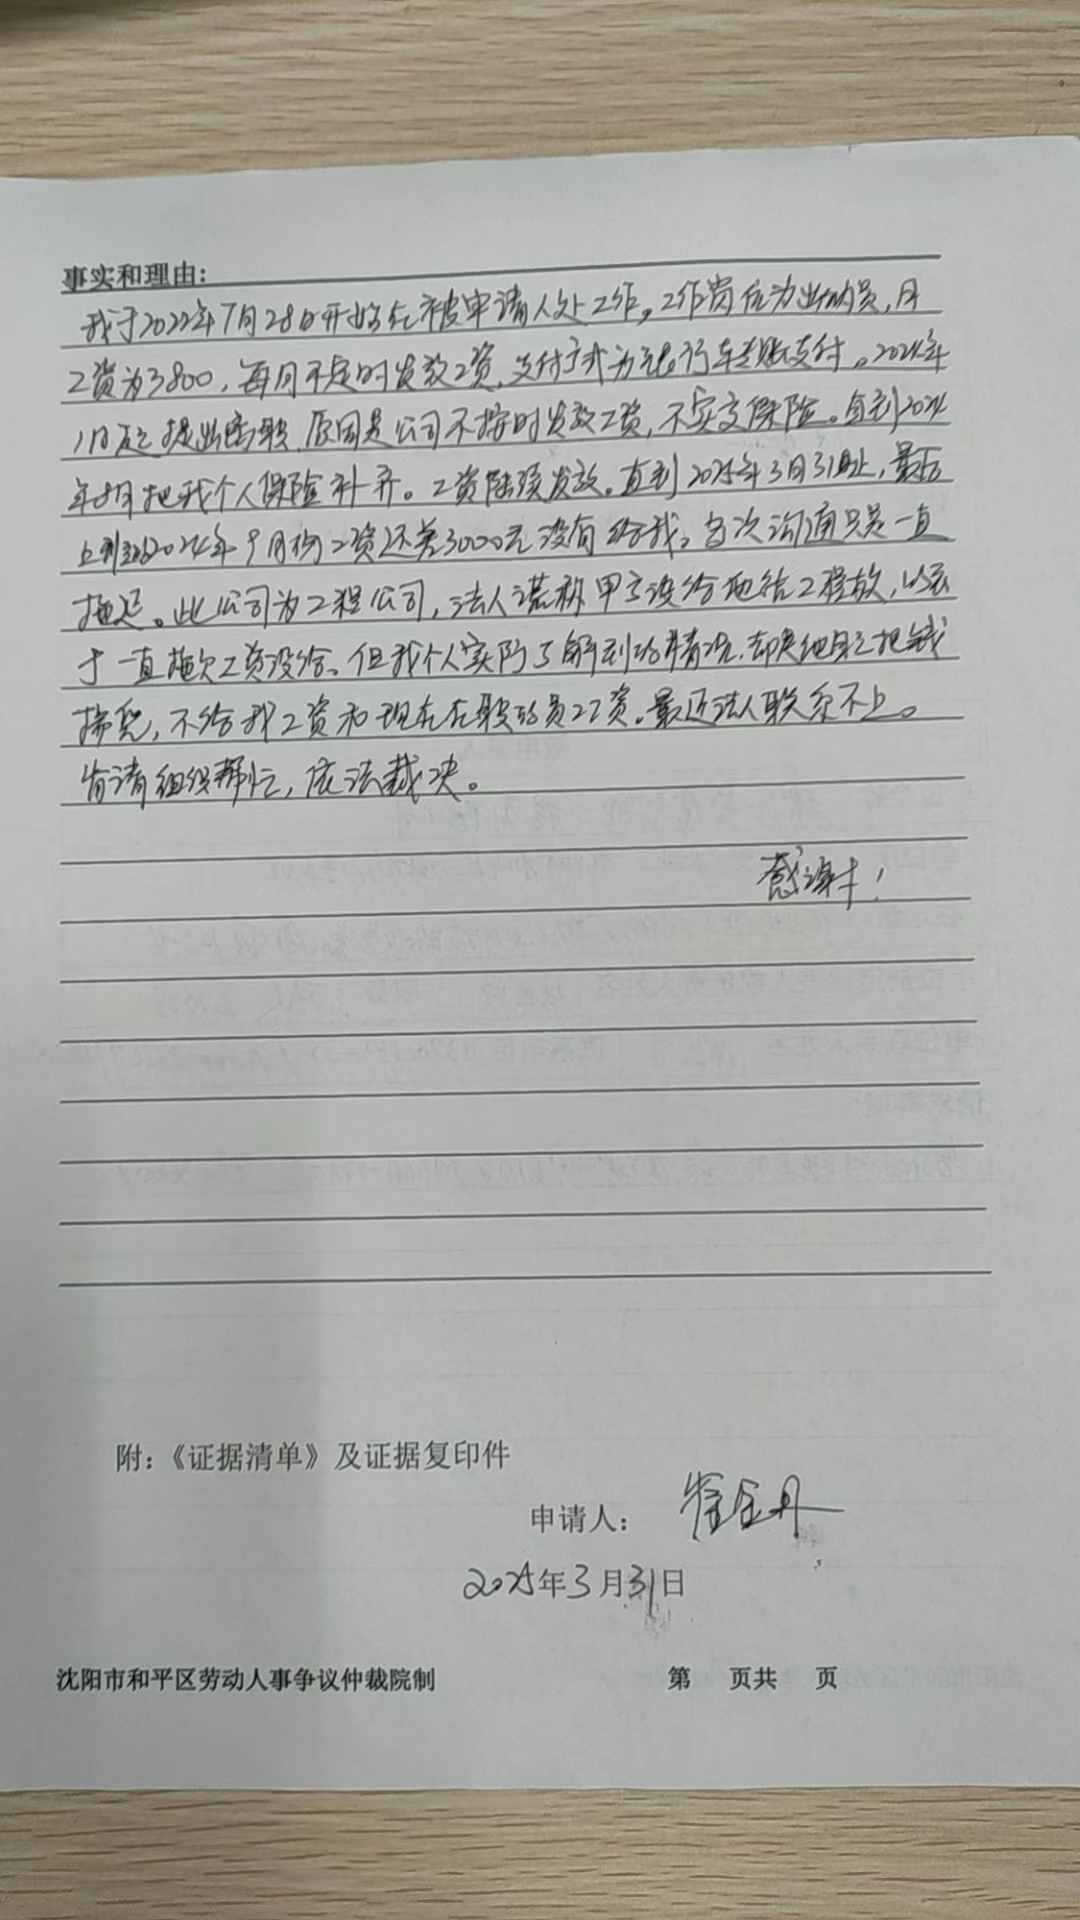 事实和理由:
我于2022年7月28日开始在被申请人处工作。工作岗位为出纳员,月
工资为3800,每月不定时发放工资,支付方式为银行卡转账支付。2024年
1月起提出离职,原因是公司不按时发放工资,不实交保险。直到2024
年8月把我个人保险补齐。工资陆续发放。直到2025年3月31日止,最后
2024年9月份工资还差3000元没有给我。每次沟通只是一直
拖延。此公司为工程公司,法人谎称甲方没给他结工程款,以至
于一直拖欠工资没给。但我个人实际了解到的情况,却是他自己把钱
挥霍,不给我工资和现在在职的员工工资。最近法人联系不上。
肯请组织帮忙,依法裁决。
感谢!
附:《证据清单》及证据复印件
申请人:
2025年3月31日
沈阳市和平区劳动人事争议仲裁院制
第 页共 页